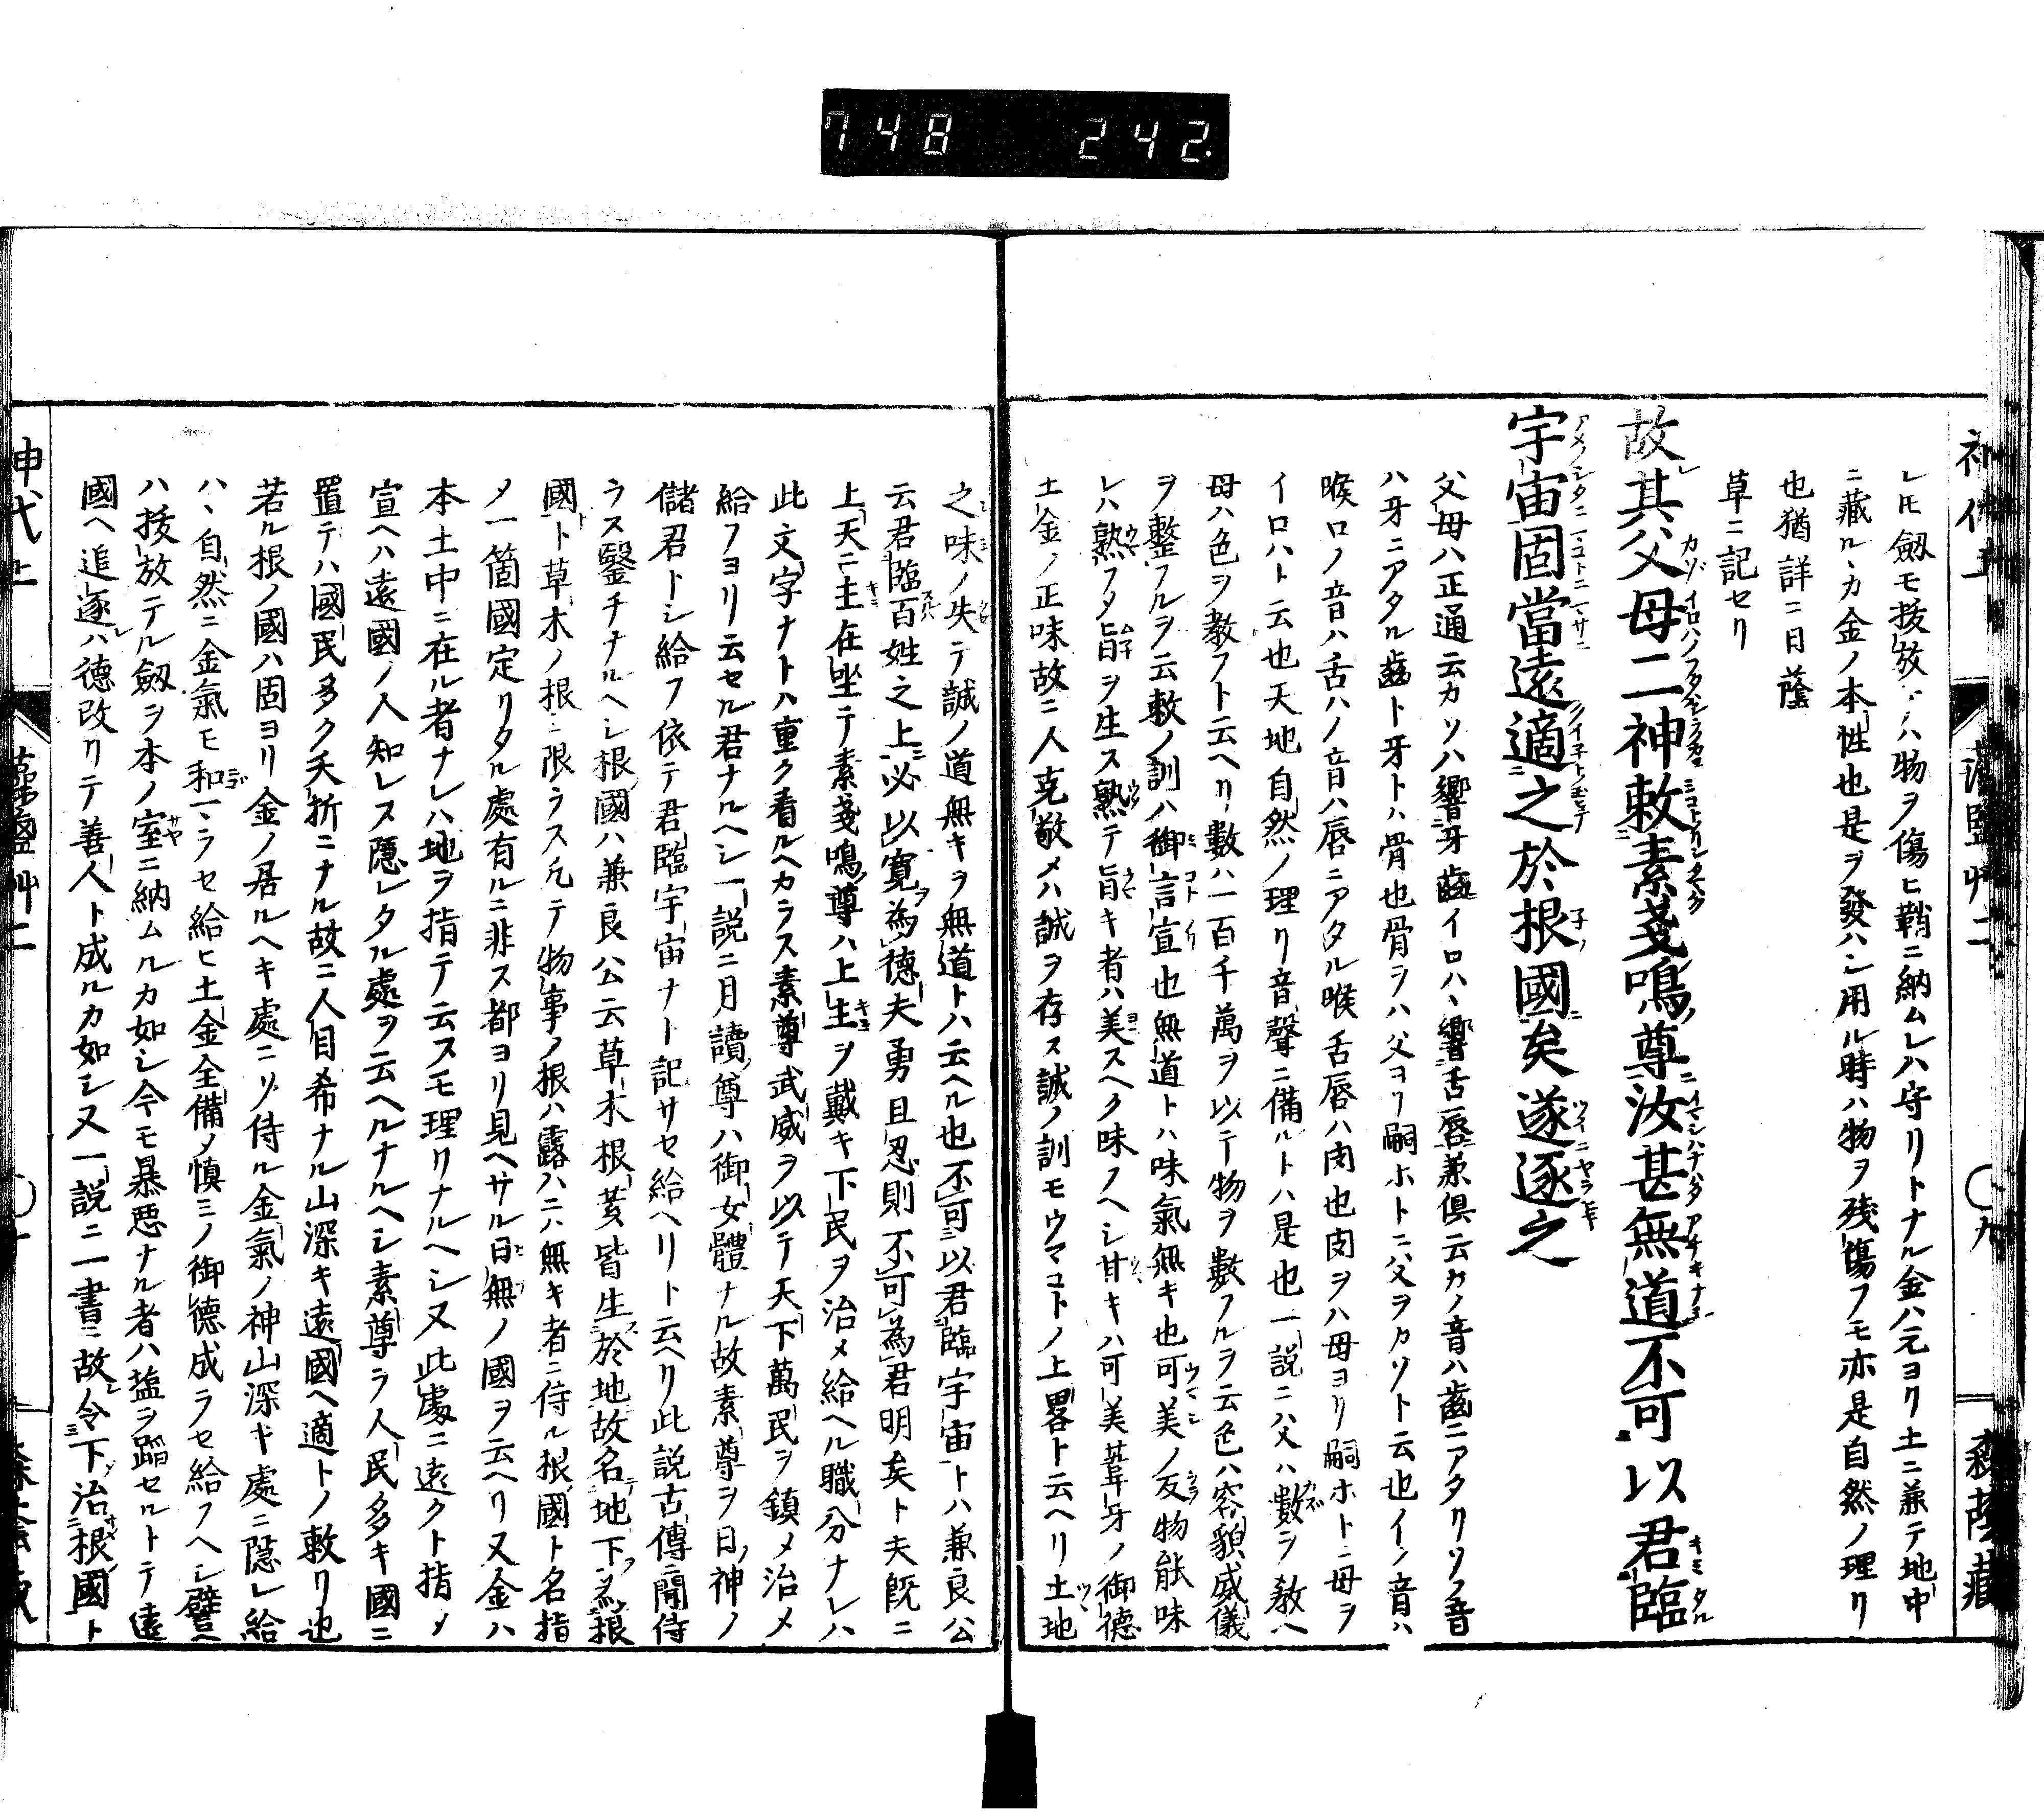 748 242.
レ𪜈劔モ抜放ハ物ヲ傷ヒ鞘ニ納ムレハ守リトナル金ハ元ヨリ土ニ兼テ地中
ニ藏ルヽカ金ノ本性也是ヲ發ハシ用ル時ハ物ヲ殘傷フモ亦是自然ノ理リ
也猶詳ニ日蔭
草ニ記セリ
故其父母二神敕素戔嗚尊汝甚無道不可以君臨
宇宙固當遠適之於根國矣遂逐之
父母ハ正通云カソハ響牙齒イロハヽ響舌唇兼倶云カノ音ハ齒ニアタリソノ音
ハ牙ニアタル齒ト牙トハ骨也骨ヲハ父ヨリ嗣ホトニ父ヲカソト云也イノ音ハ
喉ロノ音ハ舌ハノ音ハ唇ニアタル喉舌唇ハ肉也肉ヲハ母ヨリ嗣ホトニ母ヲ
イロハト云也天地自然ノ理リ音聲ニ備ルトハ是也一説ニハ父ハ數ヲ教ヘ
母ハ色ヲ教フト云ヘリ數ハ一百千萬ヲ以テ物ヲ數フルヲ云色ハ容貌威儀
ヲ整フルヲ云敕ノ訓ハ御言宣也無道トハ味氣無キ也可美ノ反物能味
レハ熟フタ旨ヲ生ス熟テ旨キ者ハ美スヘク味フヘシ甘キハ可美葦牙ノ御德
土金ノ正味故ニ人克敬メハ誠ヲ存ス誠ノ訓モウマコトノ上畧ト云ヘリ土地
之味ノ失テ誠ノ道無キヲ無道トハ云ヘル也不可以君臨宇宙トハ兼良公
云君臨百姓之上必以寛為德夫勇且忍則不可為君明矣ト夫既ニ
上天ニ主在坐テ素戔嗚尊ハ上生ヲ戴キ下民ヲ治メ給ヘル職分ナレハ
此文字ナトハ重ク看ルヘカラス素尊武威ヲ以テ天下萬民ヲ鎮メ治メ
給フヨリ云セル君ナルヘシ一説ニ月讀尊ハ御女體ナル故素尊ヲ日神ノ
儲君トシ給フ依テ君臨宇宙ナト記サセ給ヘリト云ヘリ此説古傳ニ聞侍
ラス鑿チナルヘシ根國ハ兼良公云草木根荄皆生於地故名地下為根
國ト草木ノ根ニ限ラス凡テ物事ノ根ハ露ハニハ無キ者ニ侍ル根國ト名指
メ一箇國定リタル處有ルニ非ス都ヨリ見ヘサル日無ノ國ヲ云ヘリ又金ハ
本土中ニ在ル者ナレハ地ヲ指テ云スモ理リナルヘシ又此處ニ遠クト指メ
宣ヘハ遠國ノ人知レス隱レタル處ヲ云ヘルナルヘシ素尊ラ人民多キ國ニ
置テハ國民多ク夭折ニナル故ニ人目希ナル山深キ遠國ヘ適トノ敕リ也
若ル根ノ國ハ固ヨリ金ノ居ルヘキ處ニソ侍ル金氣ノ神山深キ處ニ隱レ給
ハヽ自然ニ金氣モ和マラセ給ヒ土金全備メ慎ミノ御德成ラセ給フヘシ譬ヘ
ハ拔放テル劔ヲ本ノ室ニ納ムルカ如シ今モ暴惡ナル者ハ盐ヲ蹈セルトテ遠
國ヘ追逐ハ德改リテ善人ト成ルカ如シ又一説ニ一書ニ故令下治根國ト
神代上
藻鹽艸二
○九
森蔭藏
神代上
藻鹽艸二
○十